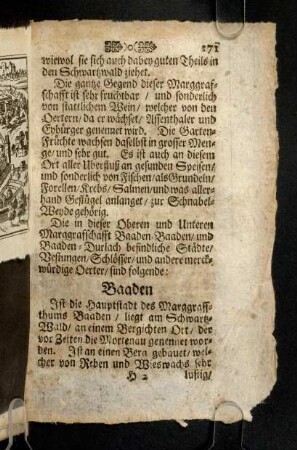 271
wiewol sie sich auch dabey guten Theils in
den Schwartzwald ziehet.
Die gantze Gegend dieser Marggraf-
schafft ist sehr fruchtbar / und sonderlich
von stattlichem Wein / welcher von den
Oertern / da er wächset / Affenthaler und
Eybürger genennet wird. Die Garten-
Früchte wachsen daselbst in grosser Men-
ge / und sehr gut. Es ist auch an diesem
Ort aller Uberfluß an gesunden Speisen /
und sonderlich von Fischen / als Grundeln /
Forellen / Krebs / Salmen / und was aller-
hand Geflügel anlanget / zur Schnabel-
Weyde gehörig.
Die in dieser Oberen und Unteren
Marggrafschafft Baaden-Baaden / und
Baaden-Durlach befindliche Städte /
Vestungen / Schlösser / und andere merck-
würdige Oerter / sind folgende:
Baaden
Ist die Hauptstadt des Marggraff-
thums Baaden / liegt am Schwartz-
Wald / an einem Bergichten Ort / der
vor Zeiten die Mortenau genennet wor-
den. Ist an einen Berg gebauet / wel-
cher von Reben und Wieswachs sehr
H 2 lustig /